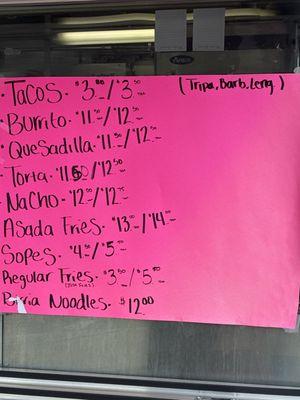 · Tacos · $3.00 / $3.50 (Tripa, Barb, Leng.)
· Burrito · $11.50 / $12.50
· Quesadilla · $11.50 / $12.50
· Torta · $11.50 / $12.50
· Nacho · $12.00 / $12.75
· Asada Fries · $13.00 / $14.00
· Sopes · $4.50 / $5.00
Regular Fries · $3.50 / $5.00
Birria Noodles · $12.00